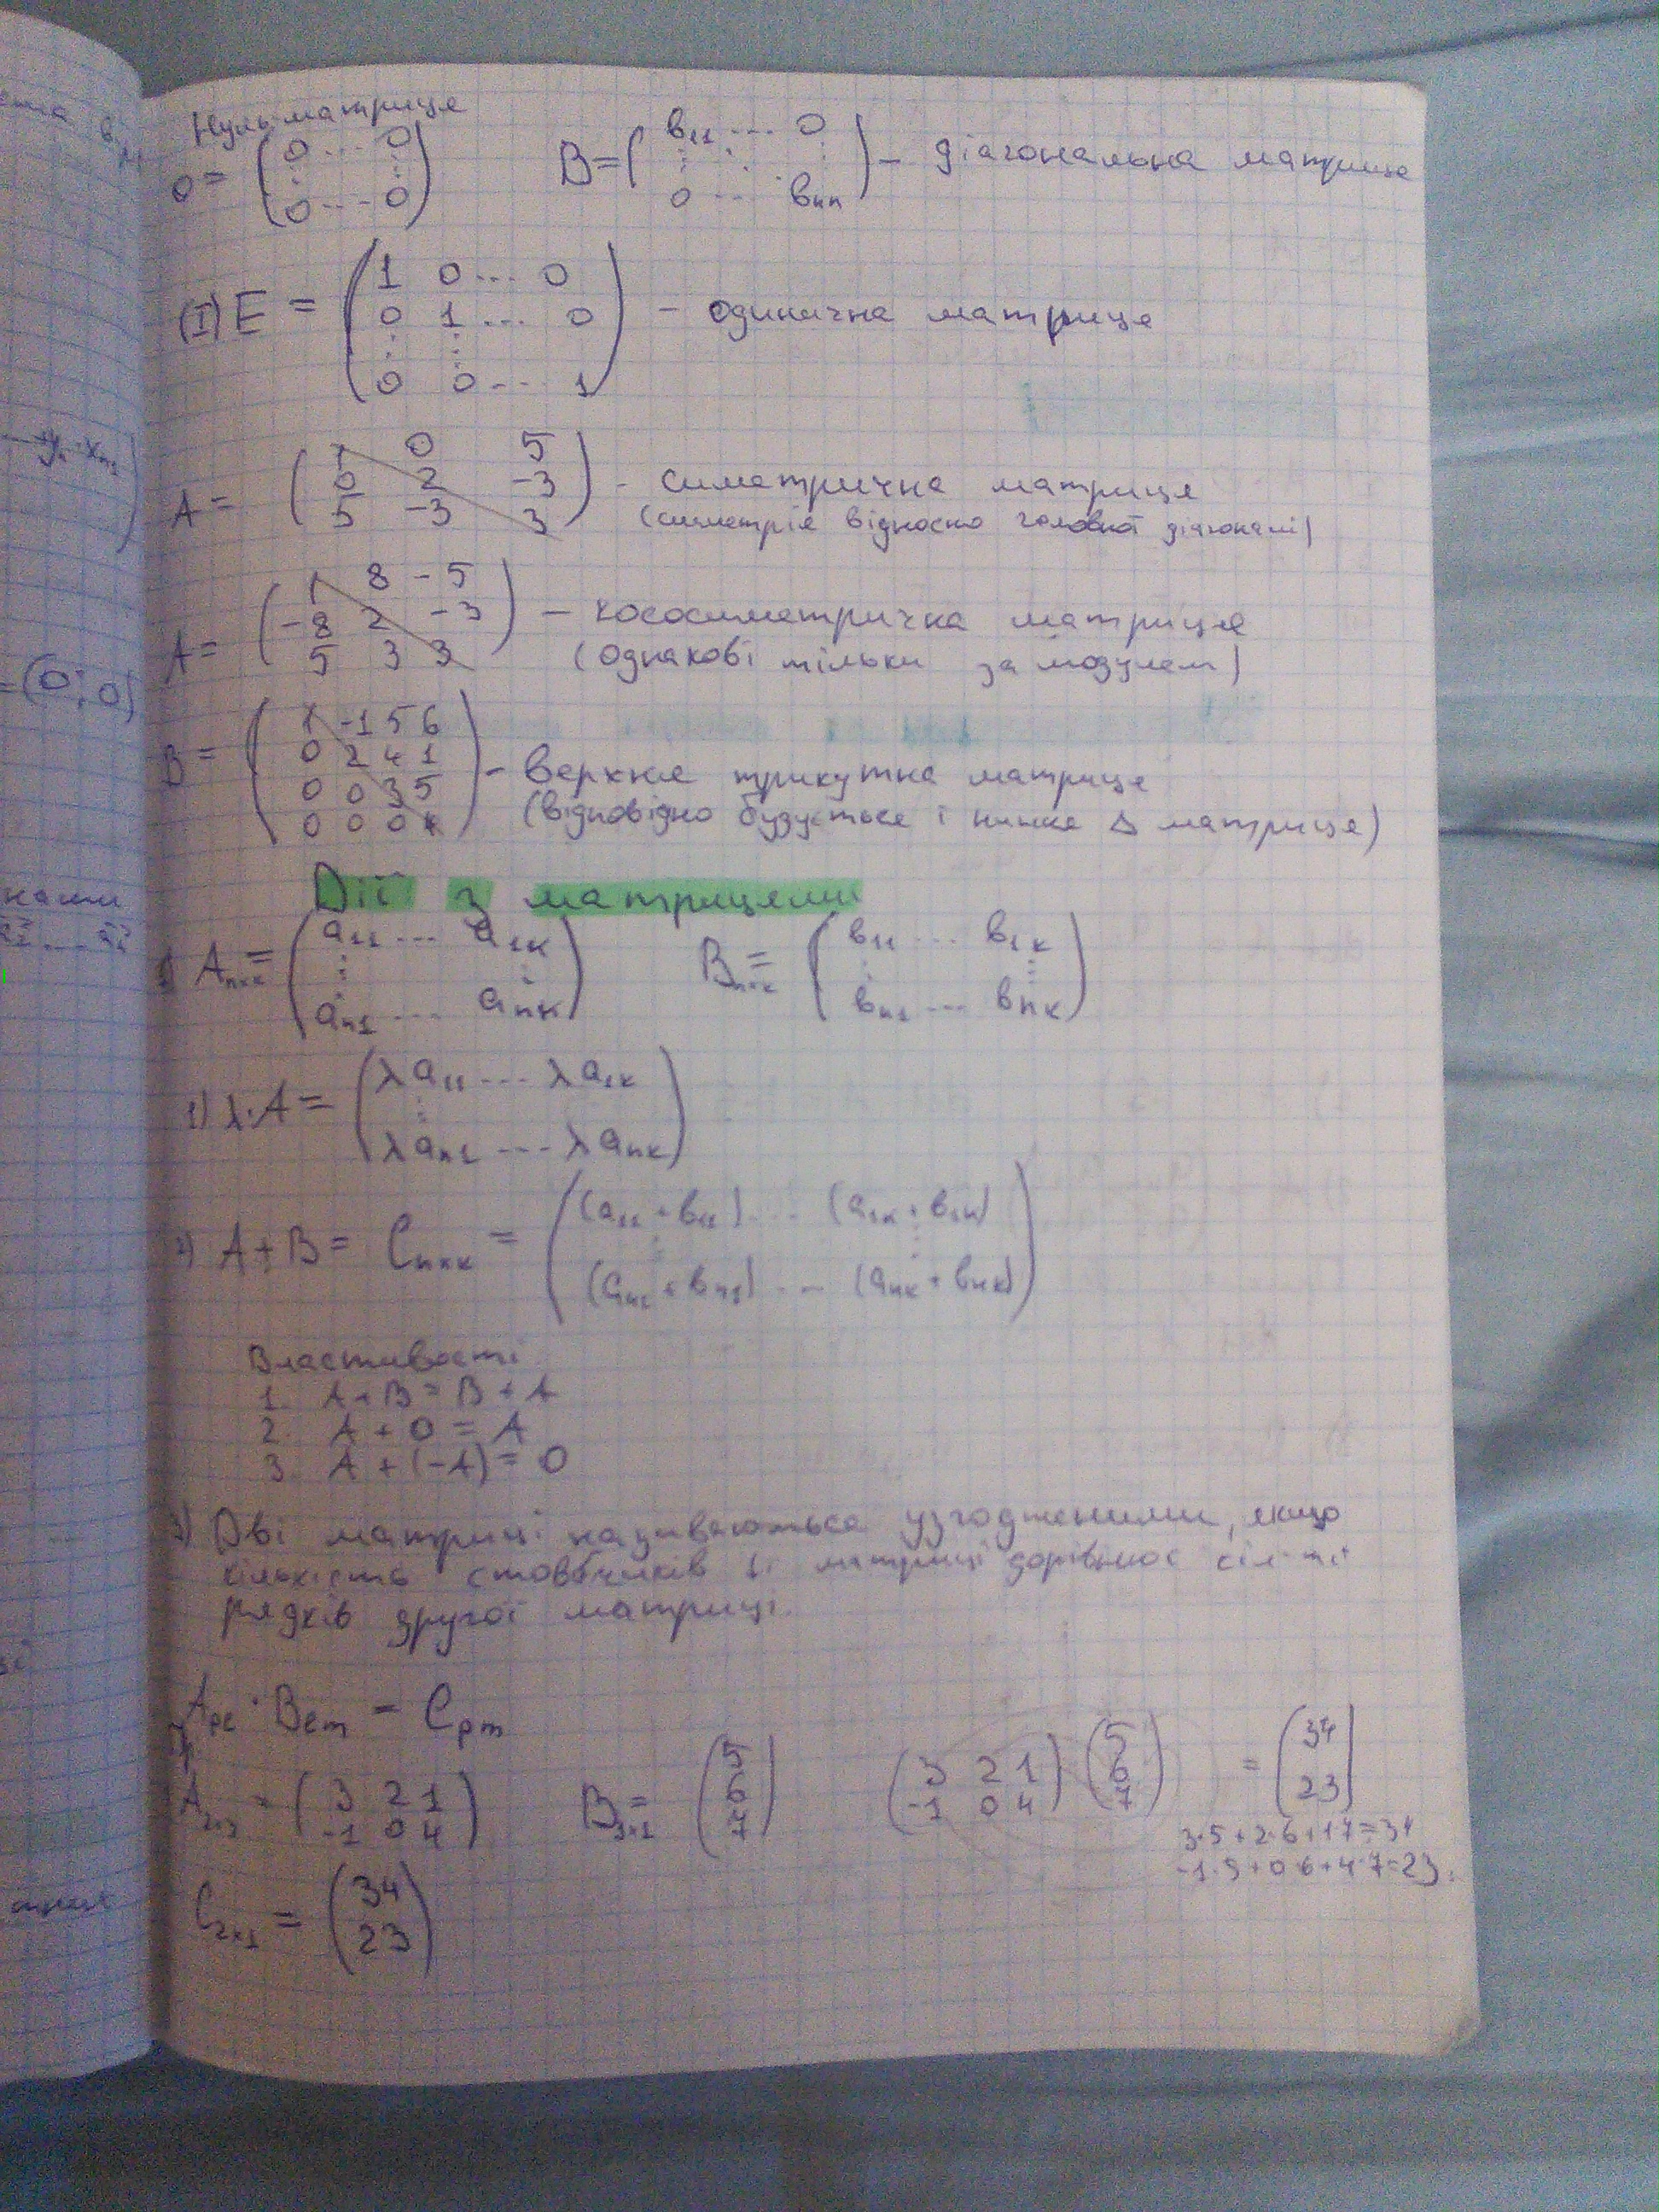 Нуль матриця
0 = (0 ... 0 ⋮ ⋮ 0 ... 0)
B = (в₁₁ ... 0 ⋮ ⋱ ⋮ 0 ... вₙₙ) – діагональна матриця
(I) E = (1 0 ... 0
0 1 ... 0
⋮ ⋮
0 0 ... 1) – одинична матриця
A = (1 0 5
0 2 -3
5 -3 3) - симетрична матриця
(симетрія відносно головної діагоналі)
A = (1 8 -5
-8 2 -3
5 3 3) – кососиметрична матриця
(однакові тільки за модулем)
B = (1 -1 5 6
0 2 4 1
0 0 3 5
0 0 0 4) – верхня трикутна матриця
(відповідно будується і нижня Δ матриця)
Дії з матрицями
Aₙₓₖ = (a₁₁ ... a₁ₖ ⋮ ⋮ aₙ₁ ... aₙₖ) Bₙₓₖ = (в₁₁ ... в₁ₖ ⋮ ⋮ вₙ₁ ... вₙₖ)
1) λ·A = (λa₁₁ ... λa₁ₖ ⋮ λaₙ₁ ... λaₙₖ)
2) A+B = Cₙₓₖ = ((a₁₁+в₁₁) ... (a₁ₖ+в₁ₖ) ⋮ ⋮ (aₙ₁+вₙ₁) ... (aₙₖ+вₙₖ))
Властивості
1. A+B=B+A
2. A+0=A
3. A+(-A)=0
3) Дві матриці називаються узгодженими, якщо
кількість стовбчиків 1ї матриці дорівнює кіл-ті
рядків другої матриці.
Aₚₑ · Bₑₘ = Cₚₘ
A₂ₓ₃ = (3 2 1
-1 0 4) B₃ₓ₁ = (5 6 7) (3 2 1
-1 0 4) (5 6 7) = (34 23)
3·5+2·6+1·7=34
-1·5+0·6+4·7=23.
C₂ₓ₁ = (34
23)